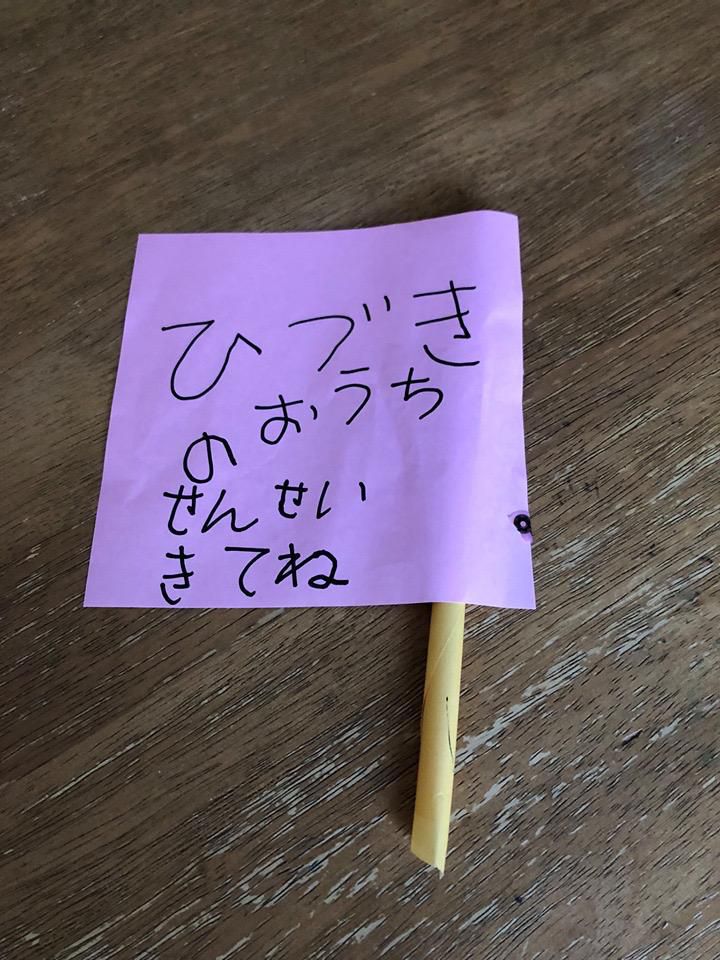 ひづき
のおうち
せんせい
きてね